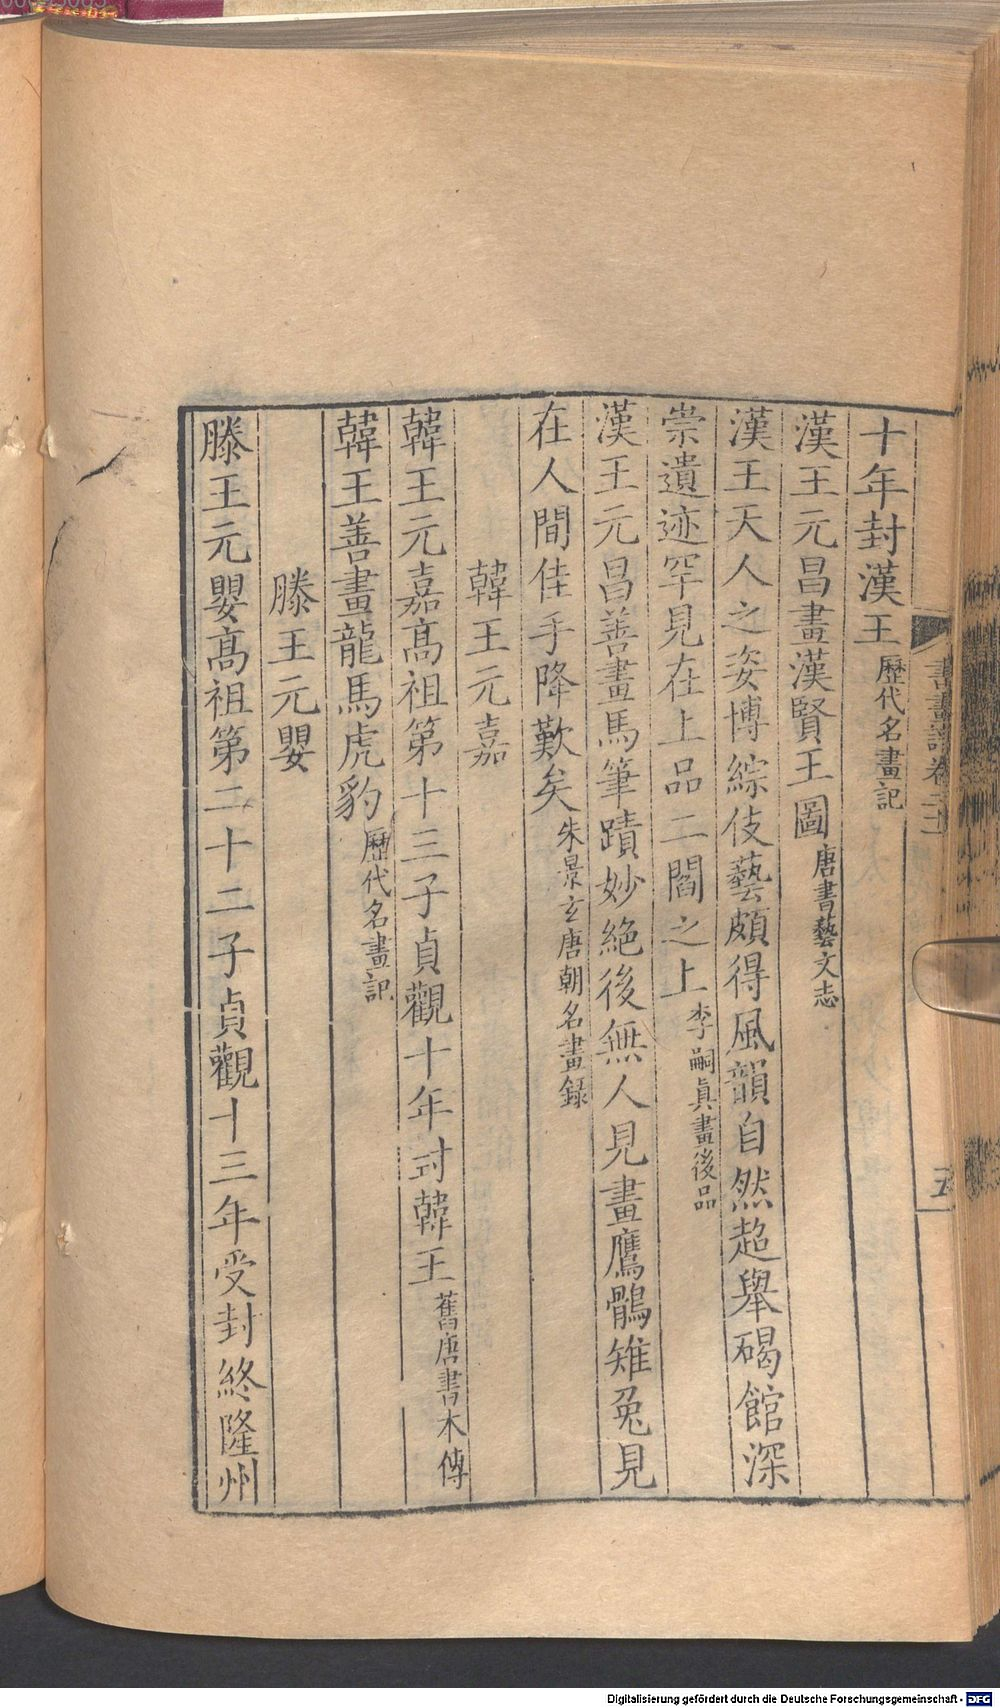 十年封漢王歷代名畫記
漢王元昌畫漢賢王圖唐書藝文志
漢王天人之姿博綜伎藝頗得風韻自然超舉碣館深
崇遺迹罕見在上品二閻之上李嗣真畫後品
漢王元昌善畫馬筆蹟妙絕後無人見畫鷹鶻雉兔見
在人間佳手降歎矣朱景玄唐朝名畫錄
韓王元嘉
韓王元嘉高祖第十三子貞觀十年封韓王舊唐書本傳
韓王善畫龍馬虎豹歷代名畫記
滕王元嬰
滕王元嬰高祖第二十二子貞觀十三年受封終隆州
Digitalisierung gefördert durch die Deutsche Forschungsgemeinschaft - DFG